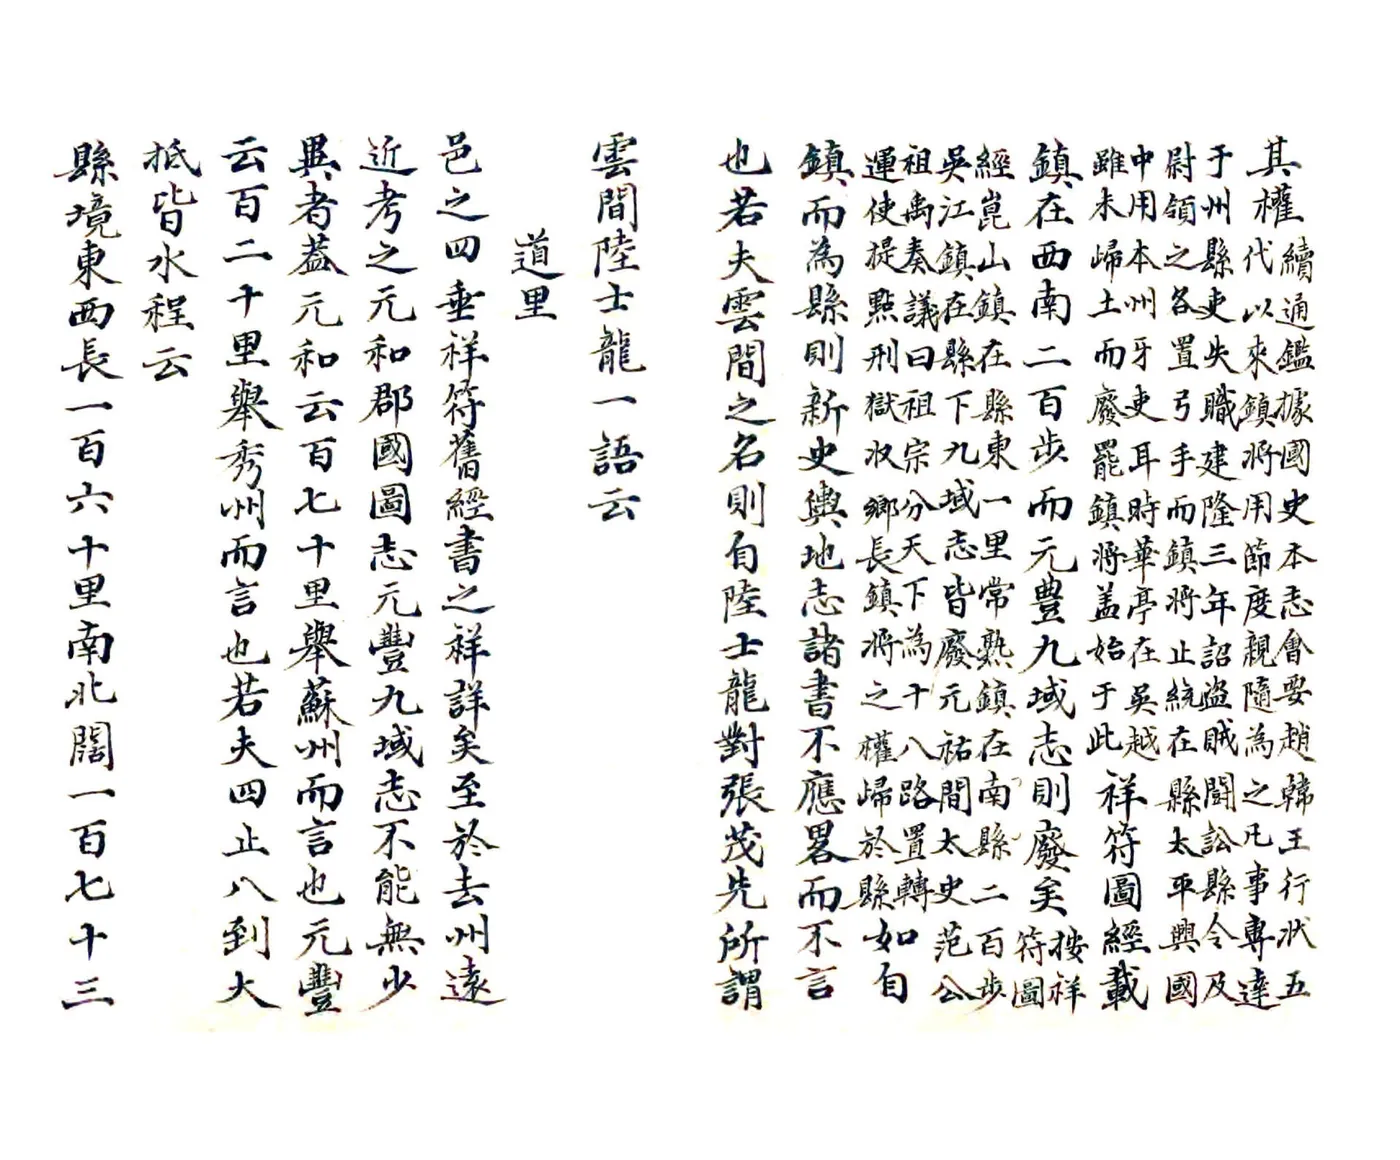 其權續通鑑據國史本志會要趙韓王行状五
代以來鎮將用節度親隨為之凡事專達
于州縣吏失職建隆三年詔盗賊闘訟縣令及
尉領之各置弓手而鎮將止統在縣太平興國
中用本州牙吏耳時華亭在吳越
雖未歸土而廢罷鎮將盖始于此祥符圖經載
鎮在西南二百歩而元豐九域志則廢矣按祥
符圖
經崑山鎮在縣東一里常熟鎮在南縣二百歩
吳江鎮在縣下九域志皆廢元祐間太史范公
祖禹奏議曰祖宗分天下為十八路置轉
運使提點刑獄収鄉長鎮將之權歸於縣如自
鎮而為縣則新史輿地志諸書不應畧而不言
也若夫雲間之名則自陸士龍對張茂先所謂
雲間陸士龍一語云
道里
邑之四垂祥符舊經書之祥詳矣至於去州遠
近考之元和郡國圖志元豐九域志不能無少
異者葢元和云百七十里舉蘇州而言也元豐
云百二十里舉秀州而言也若夫四止八到大
抵皆水程云
縣境東西長一百六十里南北闊一百七十三